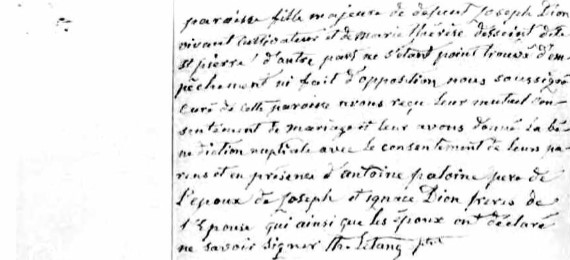 paroisse fille majeure de defunt Joseph Dion
vivant cultivateur et de marie thérèse desseint dite
st pierre d'autre part ne s'étant point trouvés d'em
pêchement ni fait d'opposition nous soussigné
curé de cette paroisse avons reçu leur mutuel con-
sentement de mariage et leur avons donné la bé-
nediction nuptiale avec le consentement de leurs pa-
rens et en présence d'antoine paloine pere de
l'epoux de Joseph et ignace Dion freres de
l'Epouse qui ainsi que les époux ont déclaré
ne savoir signer th. Letang ptre